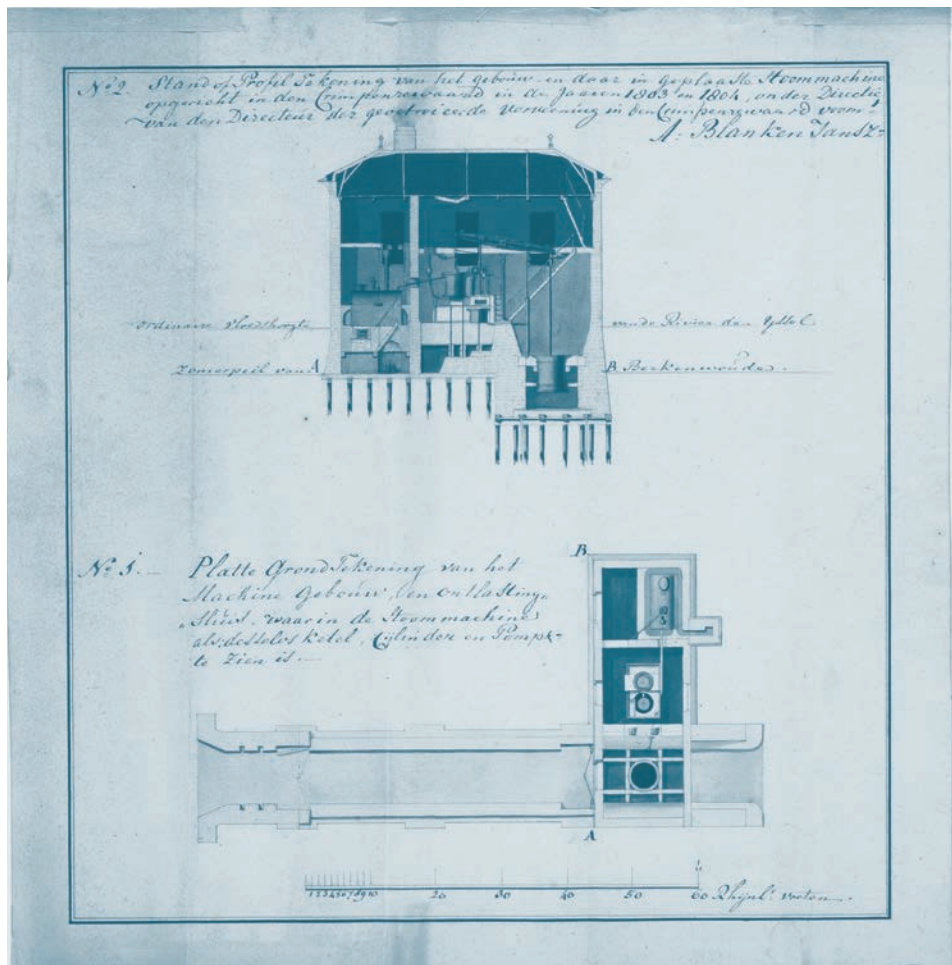 No 2. Stand of Profil Tekening van het gebouw en daar in geplaatste Stoommachine
opgericht in den Crimpenrewaard in de Jaaren 1803 en 1804, onder Directie
van den Directeur der geoctroieerde Vervening in den Crimpenrewaard voorm:
A: Blanken Jansz:
ordinaire vloedshoogte van de Rivier de Yssel
Zomerpeil van A B Berkenwoude.
No 1. Platte Grond Tekening van het B
Machine Gebouw, en ontlasting
Sluis, waarin de Stoommachine
als: Ketel, Cijlinder en Pomp
te zien is.
A
1 2 3 4 5 6 7 8 9 10 20 30 40 50 60 Rhijnl: voeten.